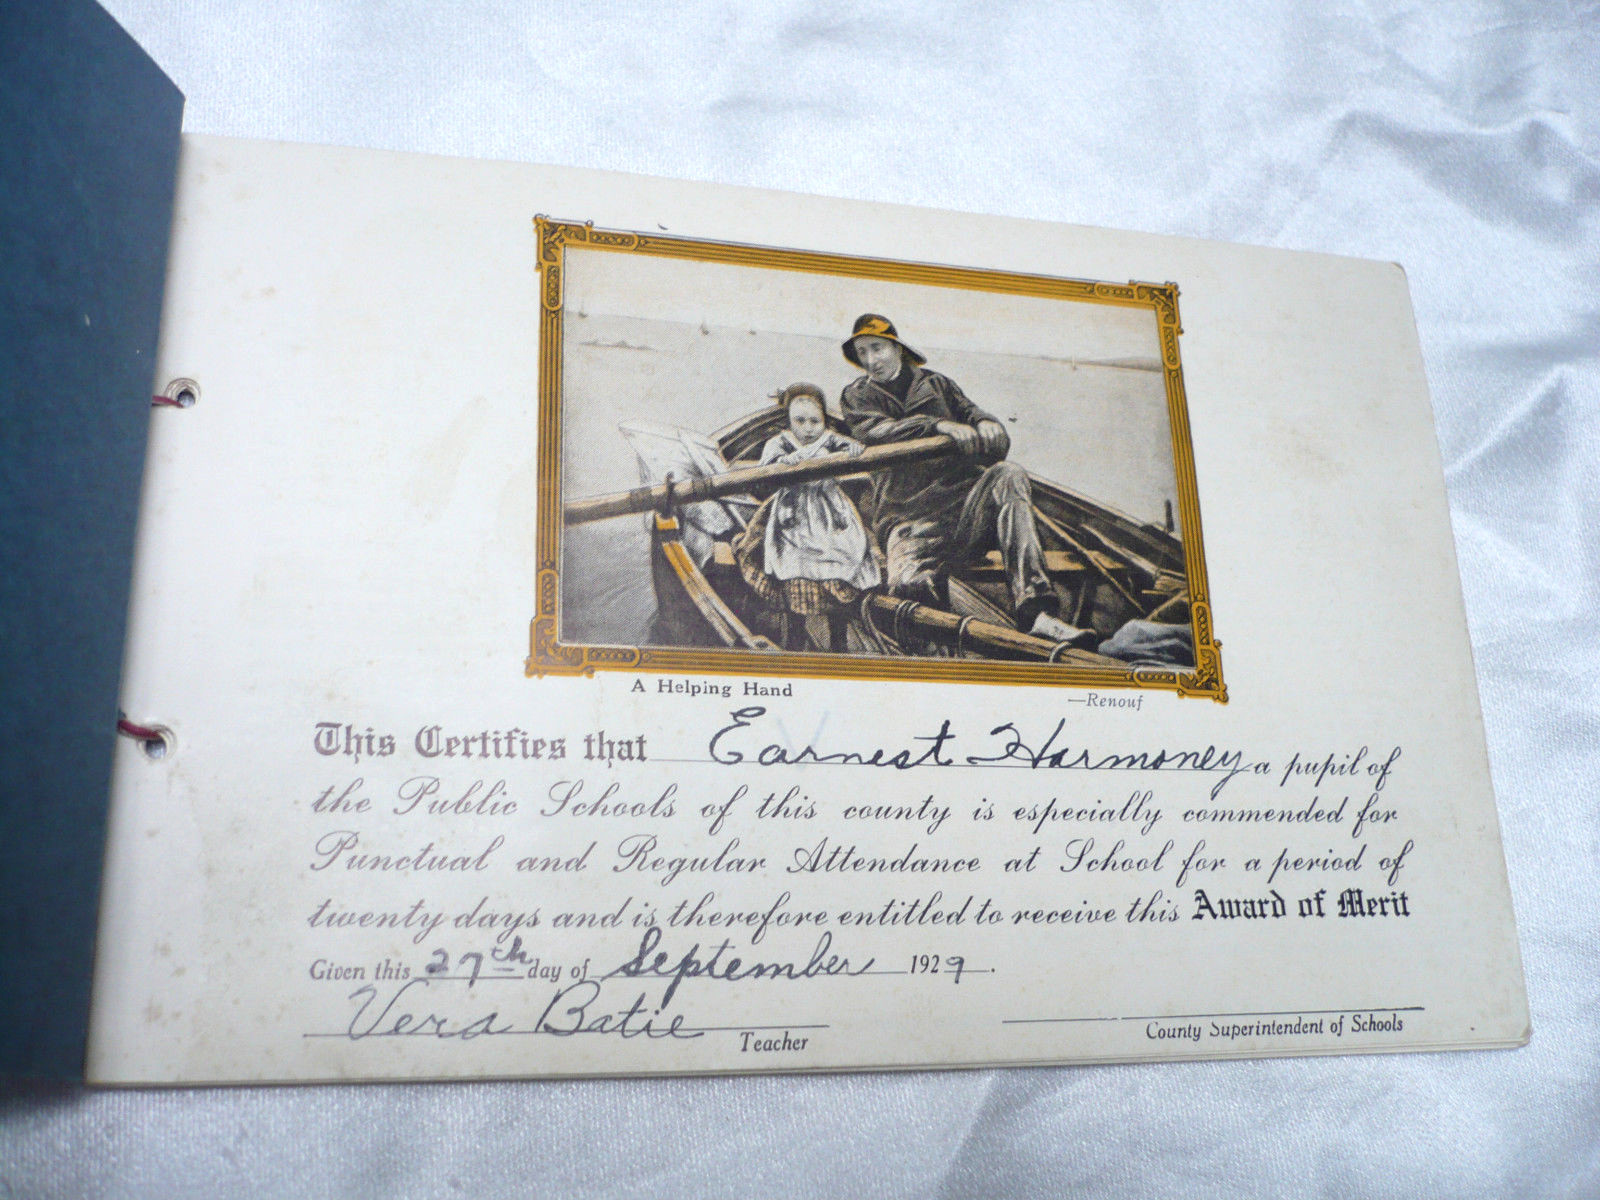 A Helping Hand —Renouf
This Certifies that Earnest Harmoney a pupil of
the Public Schools of this county is especially commended for
Punctual and Regular Attendance at School for a period of
twenty days and is therefore entitled to receive this Award of Merit
Given this 27th day of September 1929.
Vera Batie
Teacher County Superintendent of Schools